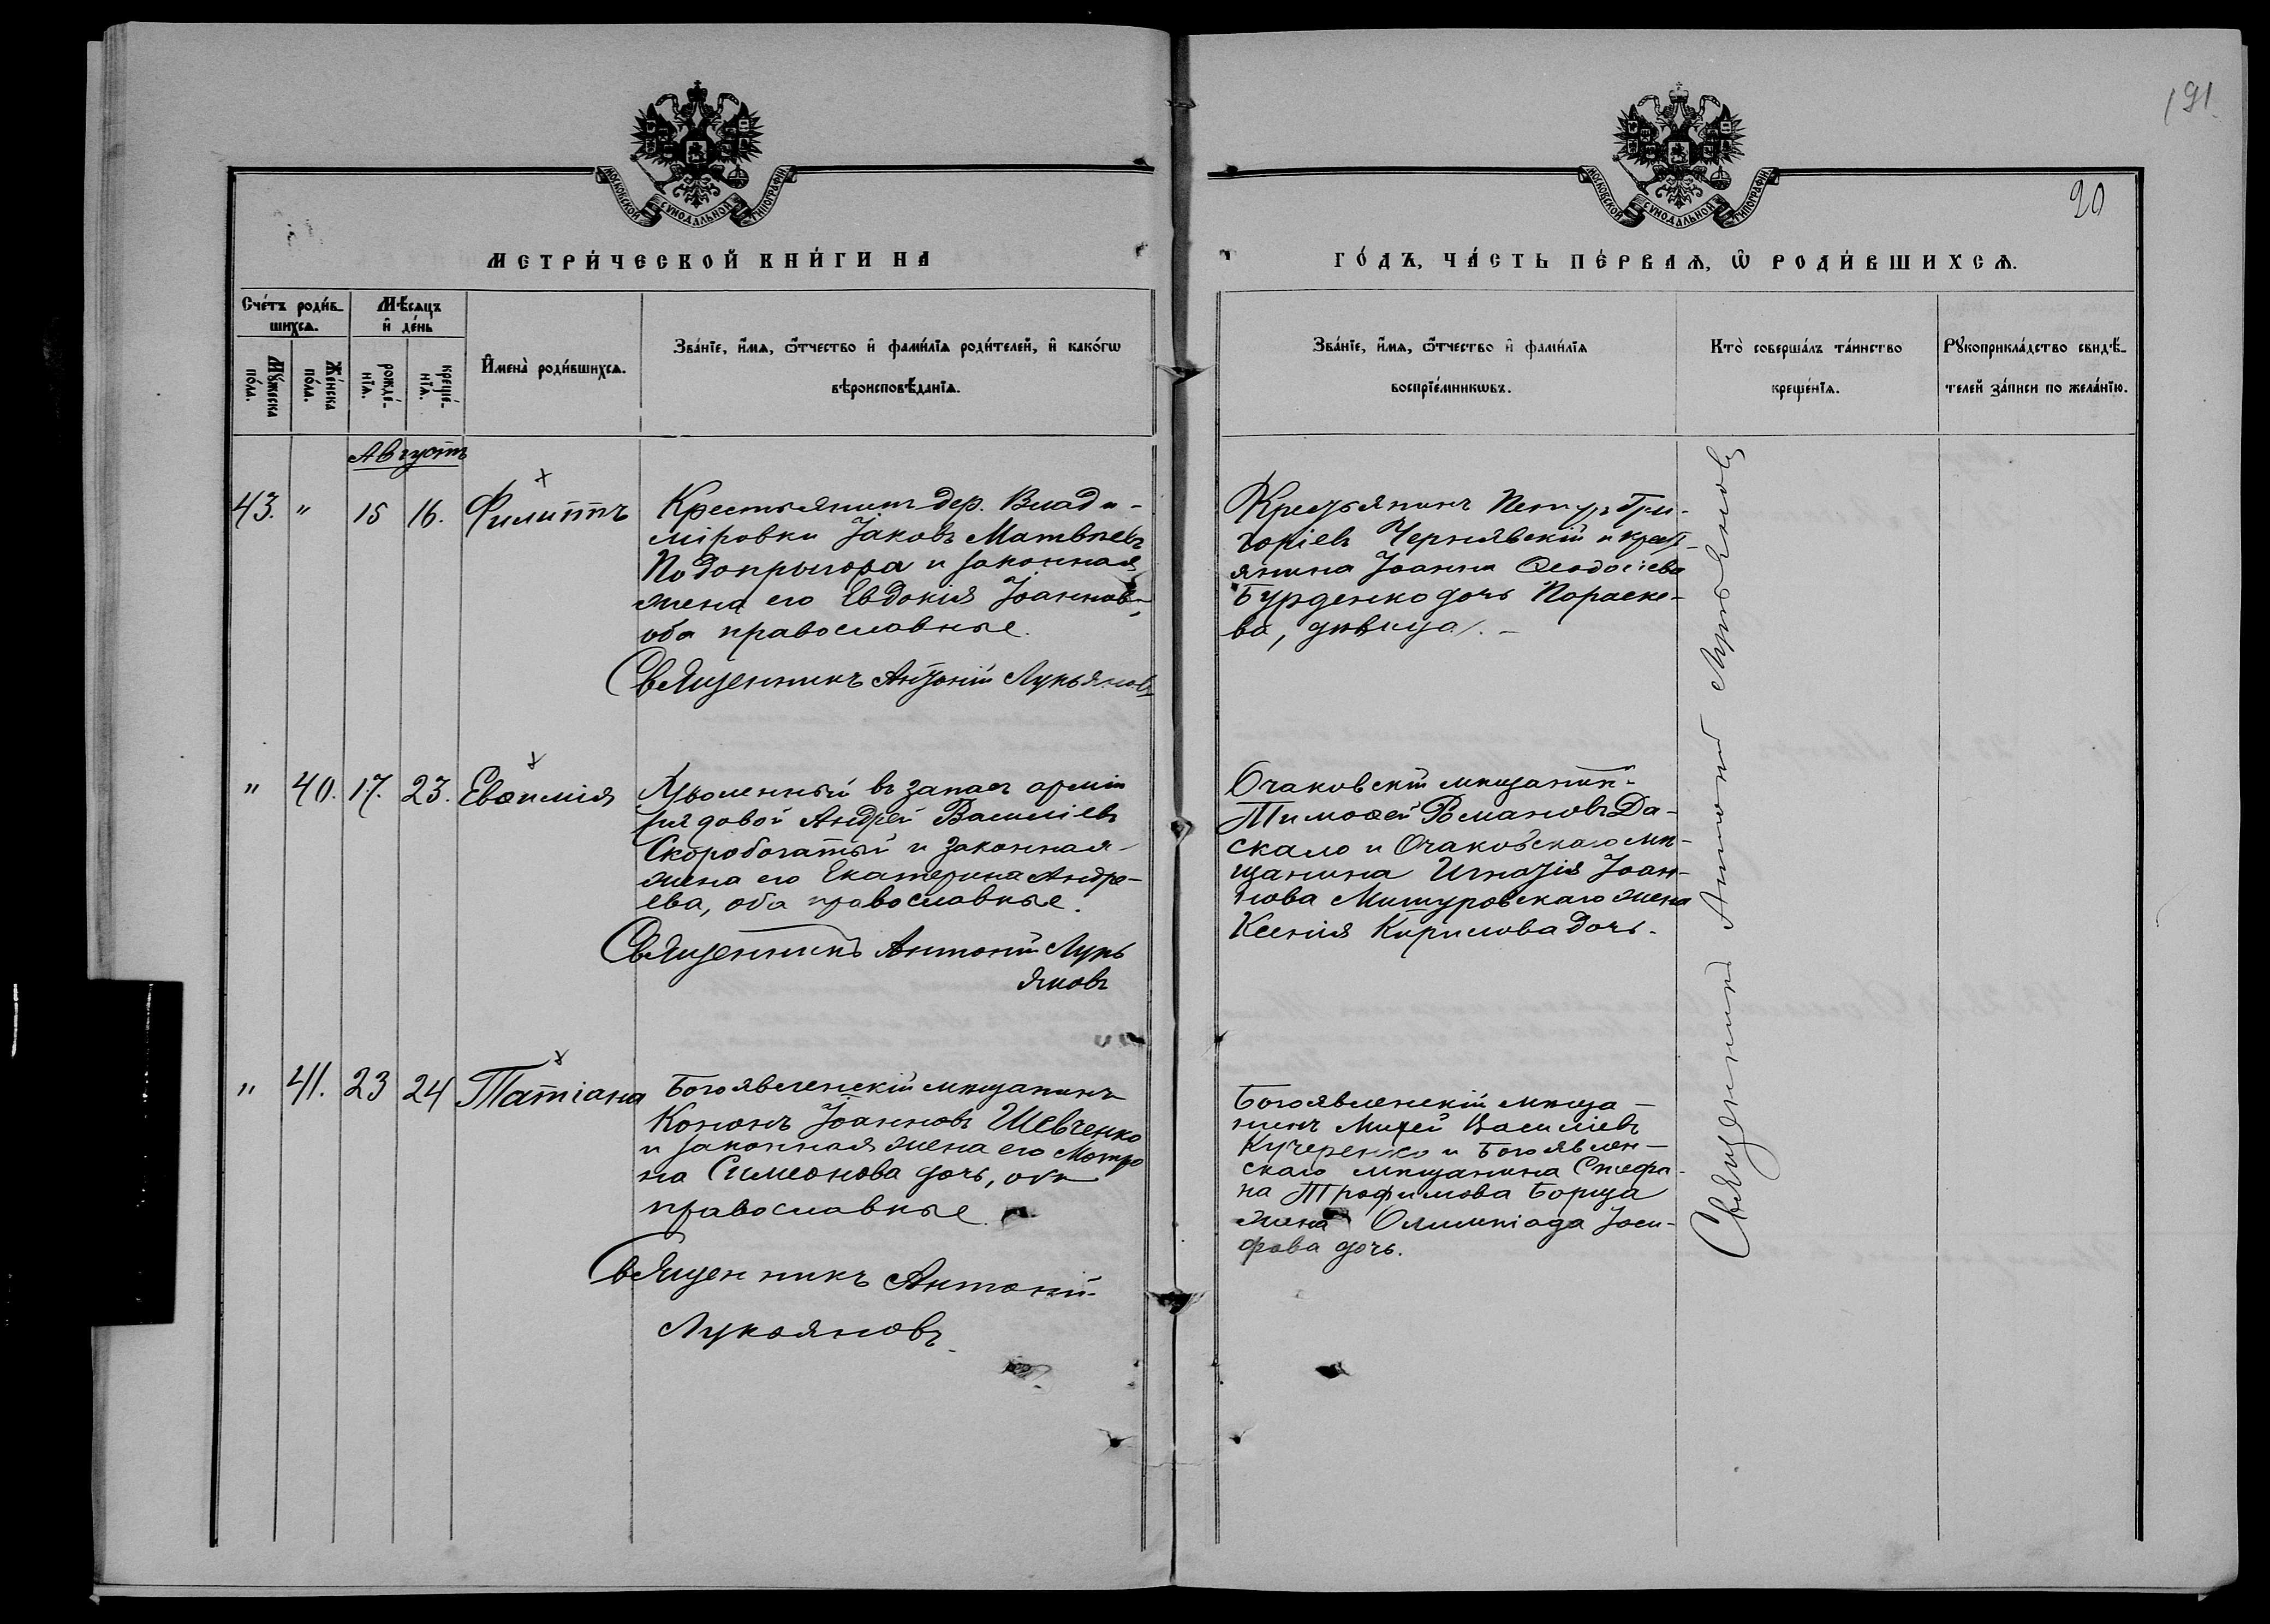 191.
МОСКОВСКОЙ СѴНОДАЛЬНОЙ ТИПОГРАФІИ
МОСКОВСКОЙ СѴНОДАЛЬНОЙ ТИПОГРАФІИ
20
МЕТРИ́ЧЕСКОЙ КНИ́ГИ НА
ГО́ДЪ, ЧА́СТЬ ПЕ́РВАѦ, Ѡ РОДИ́ВШИХСѦ.
Сче́тъ роди́в-
шихсѧ.
Мѣ́сѧцъ
и҆ де́нь
Мꙋ́жеска
по́ла.
Же́нска
по́ла.
рожде́-
нїѧ.
креще́-
нїѧ.
И҆мена̀ роди́вшихсѧ.
Зва́нїе, и҆́мѧ, ѻ҆́тчество и҆ фами́лїѧ роди́телей, и҆ како́гѡ
вѣроисповѣ́данїѧ.
Зва́нїе, и҆́мѧ, ѻ҆́тчество и҆ фами́лїѧ
воспрїе́мникѡвъ.
Кто̀ соверша́лъ та́инство
креще́нїѧ.
Рꙋкоприкла́дство свидѣ́-
телей за́писи по жела́нїю.
Августъ
43. " 15 16. Филиппъ
Крестьянинъ дер. Влади-
міровки Іаковъ Матвѣевъ
Подопрыгора и законная
жена его Евдокія Іоаннова,
оба православные.
Священникъ Антоній Лукьяновъ
Крестьянинъ Петръ Гри-
горіевъ Чернявскій и крест-
янина Іоанна Ѳеодосіева
Бурденко дочь Пораске-
ва, дѣвица.
" 40. 17. 23. Евѳимія
Уволенный въ запасъ арміи
рядовой Андрей Василіевъ
Скоробогатый и законная
жена его Екатерина Андре-
ева, оба православные.
Священникъ Антоній Лукь
яновъ
Очаковскій мѣщанинъ
Тимоѳей Романовъ Да-
скало и Очаковскаго мѣ-
щанина Игнатія Іоан-
нова Мишуровскаго жена
Ксенія Кирилова дочь.
" 41. 23 24 Татіана
Богоявленскій мѣщанинъ
Кононъ Іоанновъ Шевченко
и законная жена его Матро
на Симеонова дочь, оба
православные.
Священникъ Антоній
Лукояновъ
Богоявленскій мѣща-
нинъ Михей Василіевъ
Кучеренко и Богоявлен-
скаго мѣщанина Стефа-
на Трофимова Борща
жена Олимпіада Іоси-
фова дочь.
Священникъ Антоній Лукьяновъ